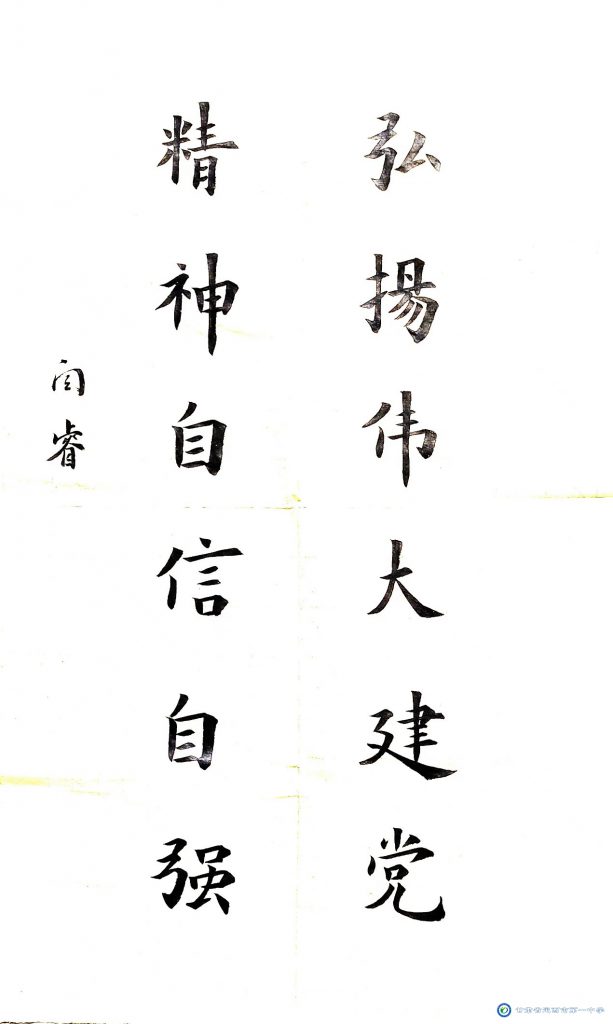 弘揚伟大建党
精神自信自强
闫睿